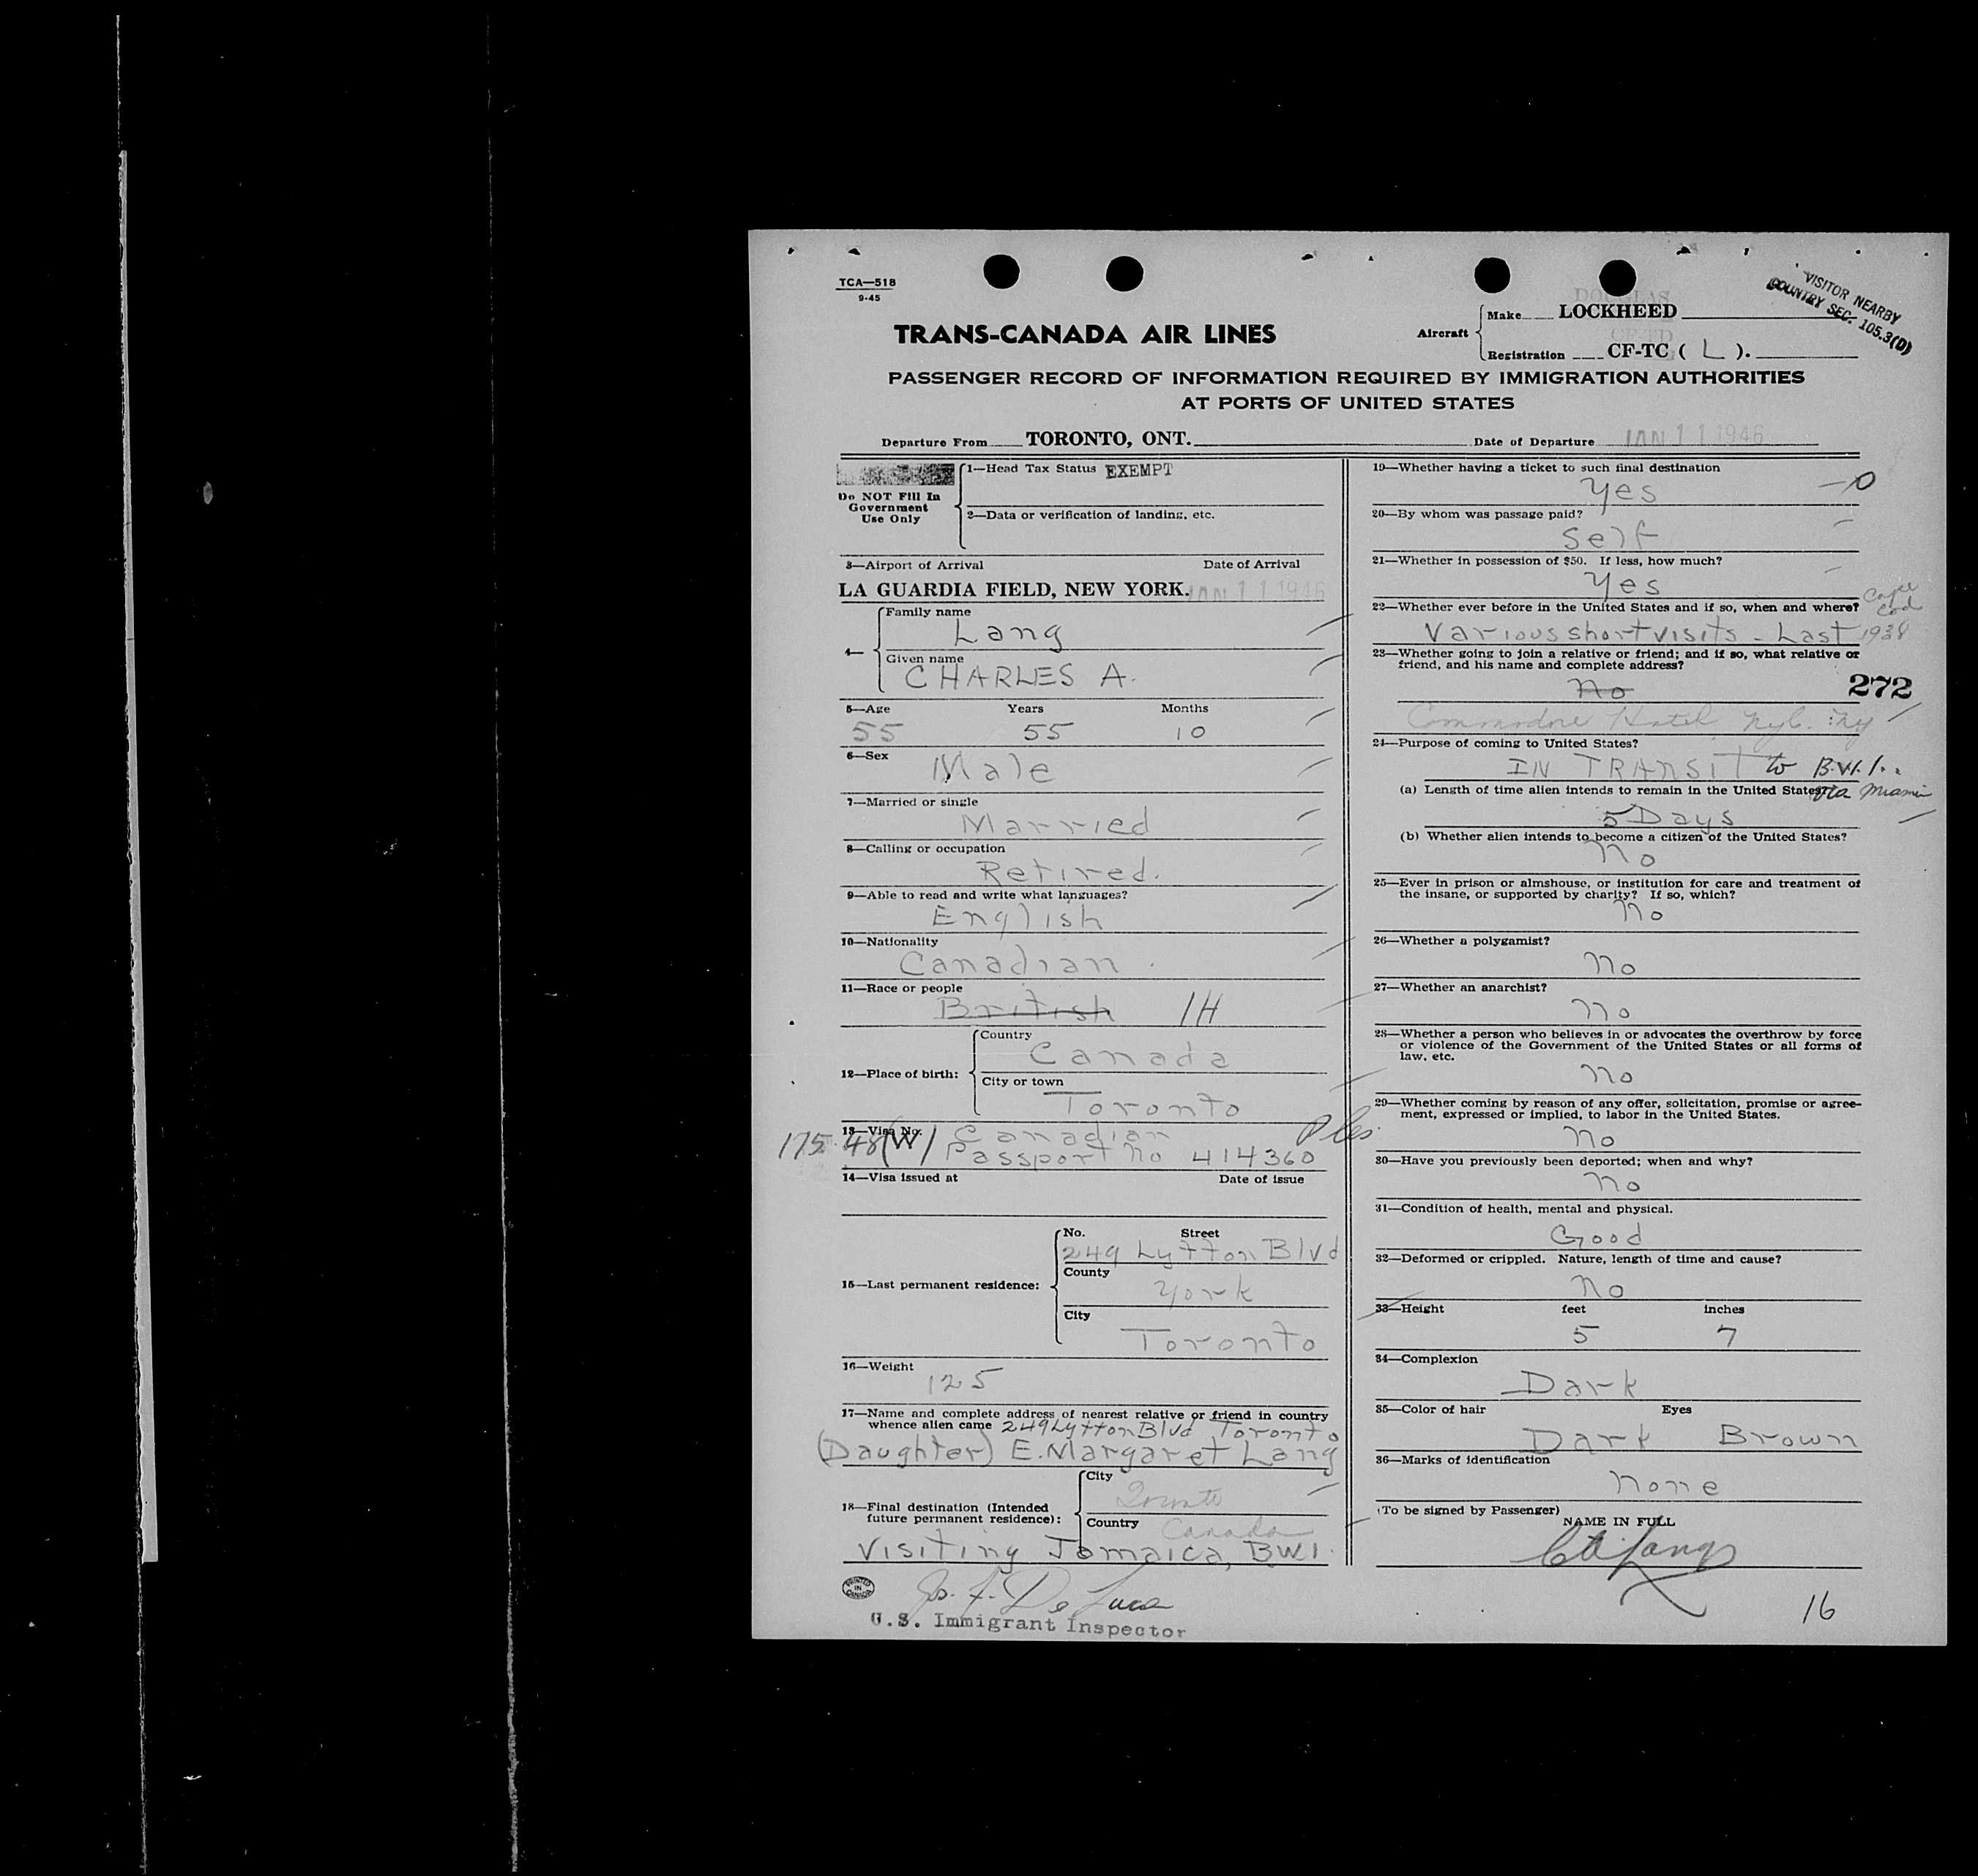 TCA—518
9-45
VISITOR NEARBY
COUNTRY SEC. 105.3(D)
TRANS-CANADA AIR LINES
Aircraft
Make LOCKHEED
Registration CF-TC ( L ).
PASSENGER RECORD OF INFORMATION REQUIRED BY IMMIGRATION AUTHORITIES
AT PORTS OF UNITED STATES
Departure From TORONTO, ONT. Date of Departure JAN 11 1946
Do NOT Fill In
Government
Use Only
1—Head Tax Status EXEMPT
2—Data or verification of landing, etc.
3—Airport of Arrival Date of Arrival
LA GUARDIA FIELD, NEW YORK. JAN 11 1946
4—
Family name
Lang
Given name
CHARLES A.
5—Age Years Months
55 55 10
6—Sex
Male
7—Married or single
Married
8—Calling or occupation
Retired.
9—Able to read and write what languages?
English
10—Nationality
Canadian
11—Race or people
British IH
12—Place of birth:
Country
Canada
City or town
Toronto
13—Visa No. Canadian
175.48(W) Passport no 414360
14—Visa issued at Date of issue
15—Last permanent residence:
No. Street
249 Lytton Blvd
County
York
City
Toronto
16—Weight
125
17—Name and complete address of nearest relative or friend in country
whence alien came 249 Lytton Blvd Toronto
(Daughter) E. Margaret Lang
18—Final destination (Intended
future permanent residence):
City
Toronto
Country Canada
Visiting Jamaica, BWI.
PRINTED IN CANADA
Jos. F. De Luca
U.S. Immigrant Inspector
19—Whether having a ticket to such final destination
Yes
20—By whom was passage paid?
Self
21—Whether in possession of $50. If less, how much?
Yes
22—Whether ever before in the United States and if so, when and where? Cape Cod
Various short visits - Last 1938
23—Whether going to join a relative or friend; and if so, what relative or
friend, and his name and complete address?
No 272
Commodore Hotel NYC. NY
24—Purpose of coming to United States?
IN TRANSIT to B.W.I.
(a) Length of time alien intends to remain in the United States? via Miami
5 Days
(b) Whether alien intends to become a citizen of the United States?
No
25—Ever in prison or almshouse, or institution for care and treatment of
the insane, or supported by charity? If so, which?
No
26—Whether a polygamist?
No
27—Whether an anarchist?
No
28—Whether a person who believes in or advocates the overthrow by force
or violence of the Government of the United States or all forms of
law, etc.
No
29—Whether coming by reason of any offer, solicitation, promise or agree-
ment, expressed or implied, to labor in the United States.
No
30—Have you previously been deported; when and why?
No
31—Condition of health, mental and physical.
Good
32—Deformed or crippled. Nature, length of time and cause?
No
33—Height feet inches
5 7
34—Complexion
Dark
35—Color of hair Eyes
Dark Brown
36—Marks of identification
None
(To be signed by Passenger)
NAME IN FULL
C A Lang
16